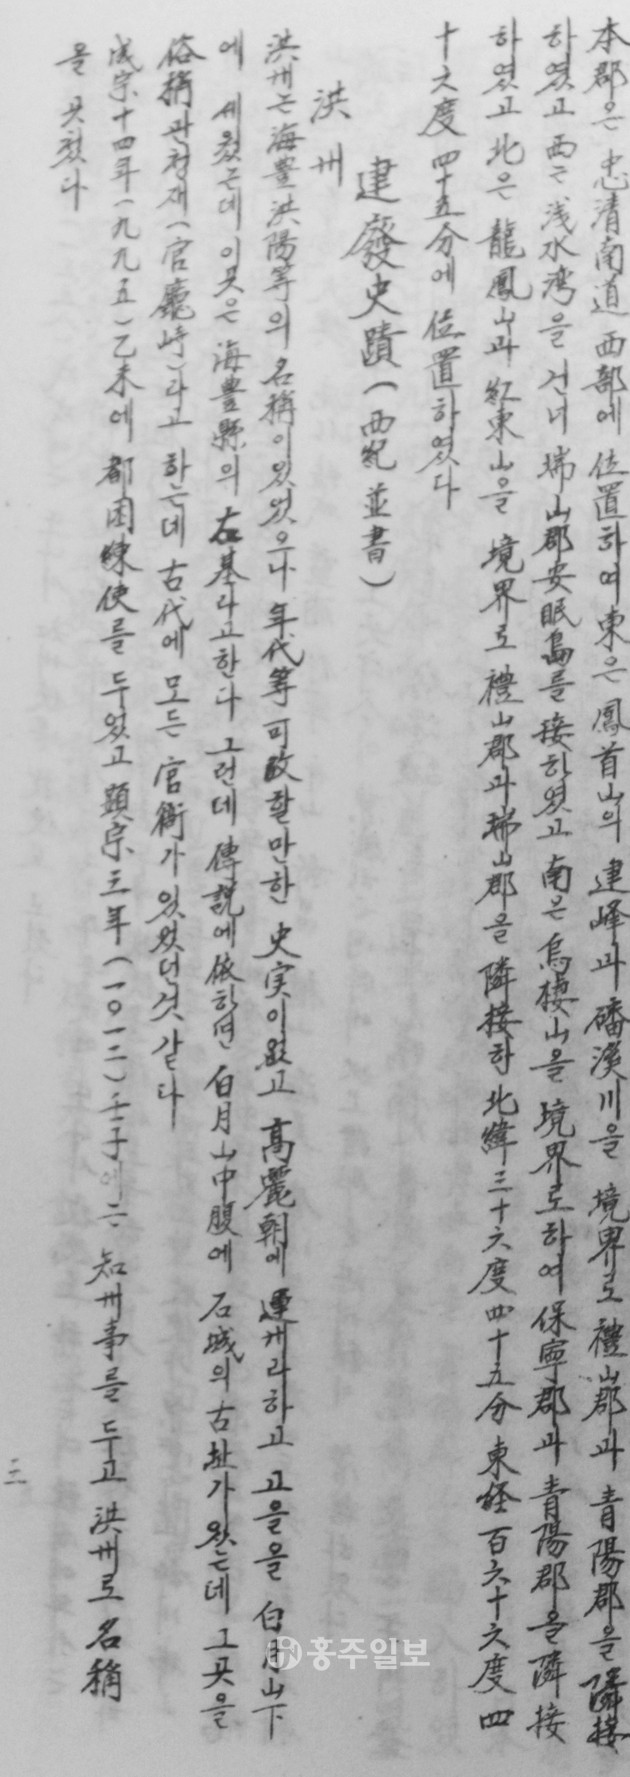 本郡은 忠清南道 西部에 位置하여 東은 鳳首山의 建峰과 磻溪川을 境界로 禮山郡과 青陽郡을 隣接
하였고 西는 浅水湾을 건너 瑞山郡安眠島를 接하였고 南은 烏棲山을 境界로하여 保寧郡과 青陽郡을 隣接
하였고 北은 龍鳳山과 紅東山을 境界로 禮山郡과 瑞山郡을 隣接하 北緯三十六度四十五分 東経百六十六度四
十六度四十五分에 位置하였다
建發史蹟(西紀並書)
洪州
洪州는 海豊洪陽等의 名稱이 있었으나 年代等 可攷할만한 史実이없고 高麗朝에 運州라하고 고을을 白月山下
에 세웠는데 이곳은 海豊縣의 古基라고한다 그런데 傳說에依하면 白月山中腹에 石城의 古址가 있는데 그곳을
俗稱관청재(官廳峙)라고 하는데 古代에 모든 官衙가 있었던것 같다
成宗十四年(九九五)乙未에 都団練使를 두었고 顕宗三年(一○一二)壬子에는 知州事를 두고 洪州로 名稱
을 곳쳤다
三
홍주일보